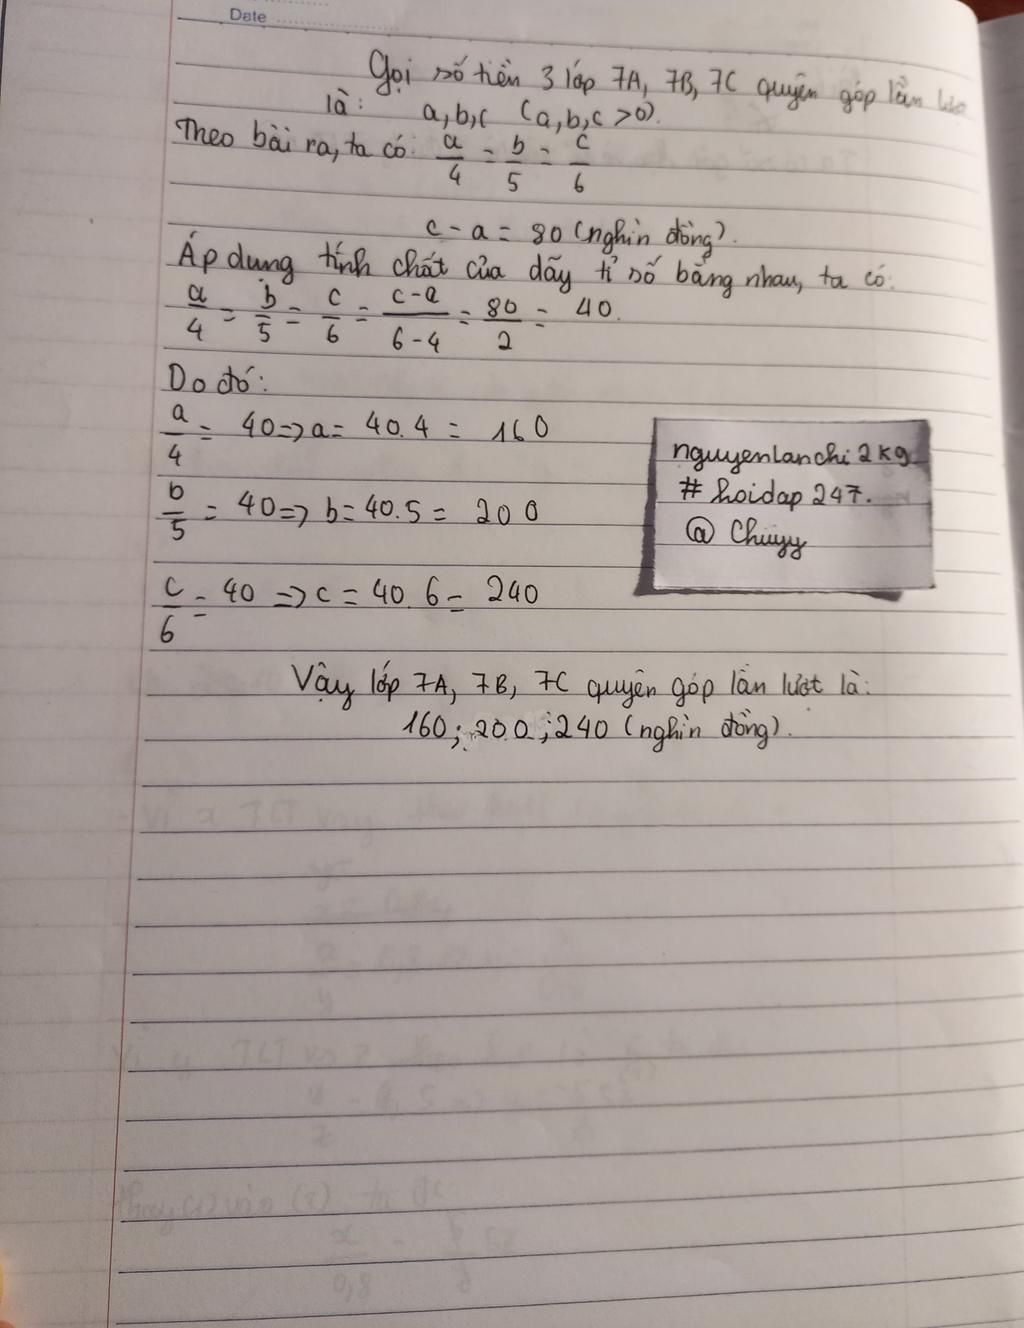 Date
Gọi số tiền 3 lớp 7A, 7B, 7C quyên góp lần lượt
là: a,b,c (a,b,c >0).
Theo bài ra, ta có: a/4 = b/5 = c/6
c - a = 80 (nghìn đồng).
Áp dung tính chất của dãy tỉ số bằng nhau, ta có:
a/4 = b/5 = c/6 = c-a/6-4 = 80/2 = 40.
Do đó:
a/4 = 40 => a = 40.4 = 160
b/5 = 40 => b = 40.5 = 200
c/6 = 40 => c = 40.6 = 240
nguyenlanchi2kg
# hoidap247.
@ Chiuyy
Vậy lớp 7A, 7B, 7C quyên góp lần lượt là:
160; 200; 240 (nghìn đồng).